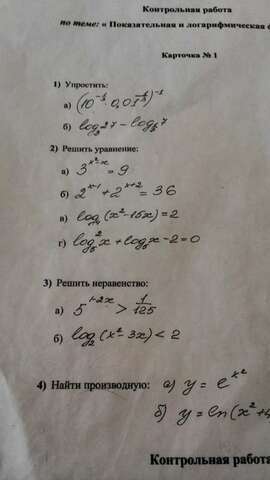 Контрольная работа
по теме: « Показательная и логарифмическая
Карточка № 1
1) Упростить:
а)
б)
2) Решить уравнение:
а) 3^(x²-x) = 9
б) 2^(x-1) + 2^(x+2) = 36
в) (x² - 15x) = 2
г) log₅²x + log₅x - 2 = 0
3) Решить неравенство:
а) 5^(1-2x) > 1/125
б) log₂(x² - 3x) < 2
4) Найти производную: а) y = e^(x²)
б) y = ln(x² +
Контрольная работа